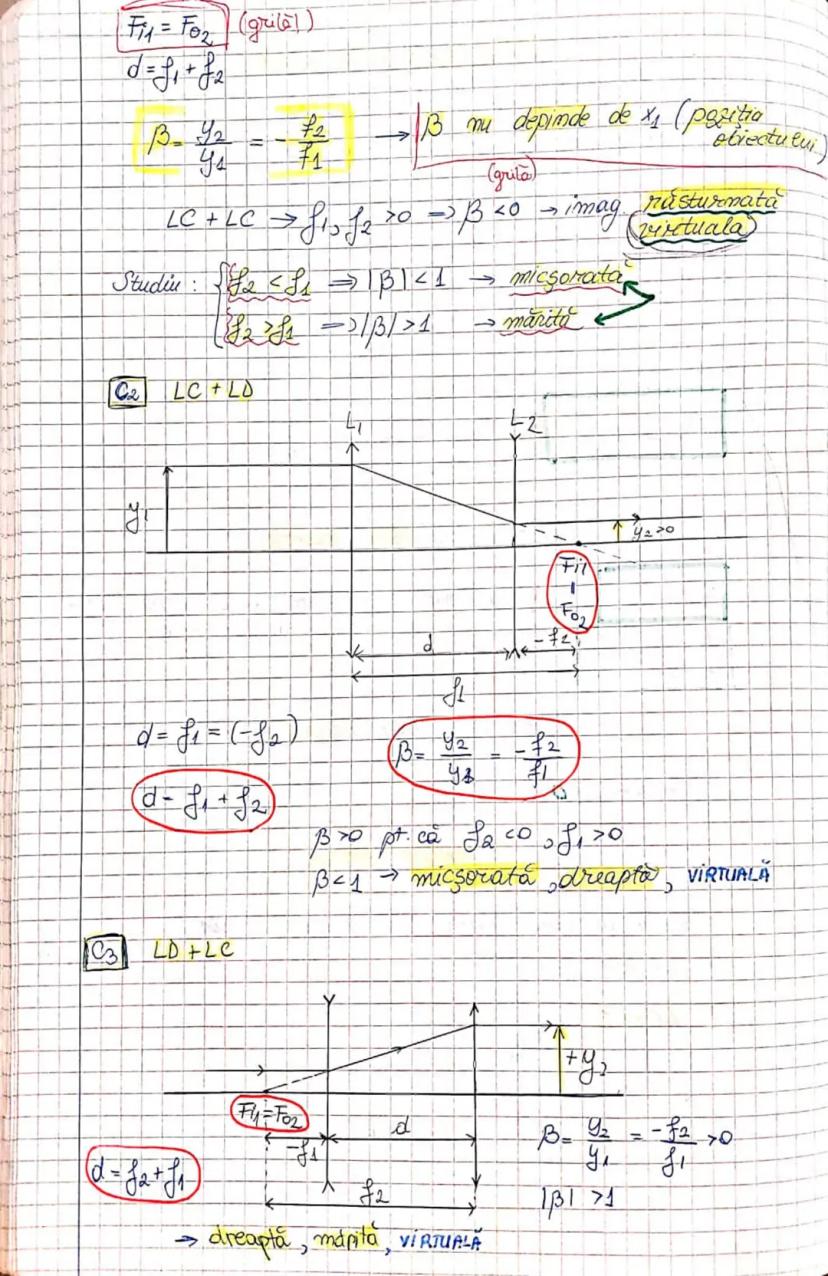 Fi1 = Fo2 (grilă!)
d = f1 + f2
β = y2/y1 = - f2/f1 → β nu depinde de x1 (poziția obiectului)
(grilă)
LC + LC → f1, f2 > 0 => β < 0 → imag. răsturnată
(virtuala)
Studiu : { f2 < f1 => |β| < 1 → micșorată
f2 > f1 => |β| > 1 → mărită
C2 LC + LD
L1 L2
y1
y2 > 0
Fi1
Fo2
d -f2
f1
d = f1 = (-f2) β = y2/y1 = -f2/f1
d = f1 + f2
β > 0 pt. că f2 < 0, f1 > 0
β < 1 → micșorată, dreaptă, VIRTUALĂ
C3 LD + LC
+y2
Fi1 = Fo2
-f1 d
β = y2/y1 = -f2/f1 > 0
d = f2 + f1
f2
|β| > 1
→ dreaptă, mărită, VIRTUALĂ